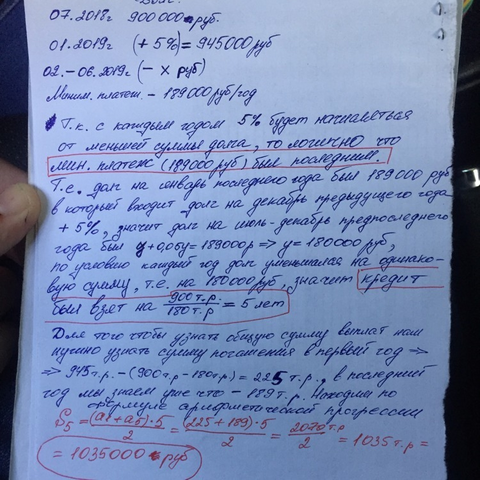 Долг:
07.2018г 900000 руб.
01.2019г (+5%) = 945000 руб
02.–06.2019г (– x руб)
Миним. платеж. – 189000 руб/год
Т.к. с каждым годом 5% будет начисляться
от меньшей суммы долга, то логично что
мин. платеж (189000 руб) был последним.
Т.е. долг на январь последнего года был 189000 руб,
в который входит долг на декабрь предыдущего года
+ 5%, значит долг на июль-декабрь предпоследнего
года был y+0,05y=189000р => y=180000 руб,
по условию каждый год долг уменьшался на одинако-
вую сумму, т.е. на 180000 руб, значит кредит
был взят на 900т.р./180т.р = 5 лет
Для того чтобы узнать общую сумму выплат нам
нужно узнать сумму погашения в первый год =>
=> 945т.р. – (900т.р – 180т.р) = 225 т.р., в последний
год мы знаем уже что – 189т.р. Находим по
формуле арифметической прогрессии
S5 = (a1+a5)·5/2 = (225+189)·5/2 = 2070т.р/2 = 1035т.р =
= 1035000 руб